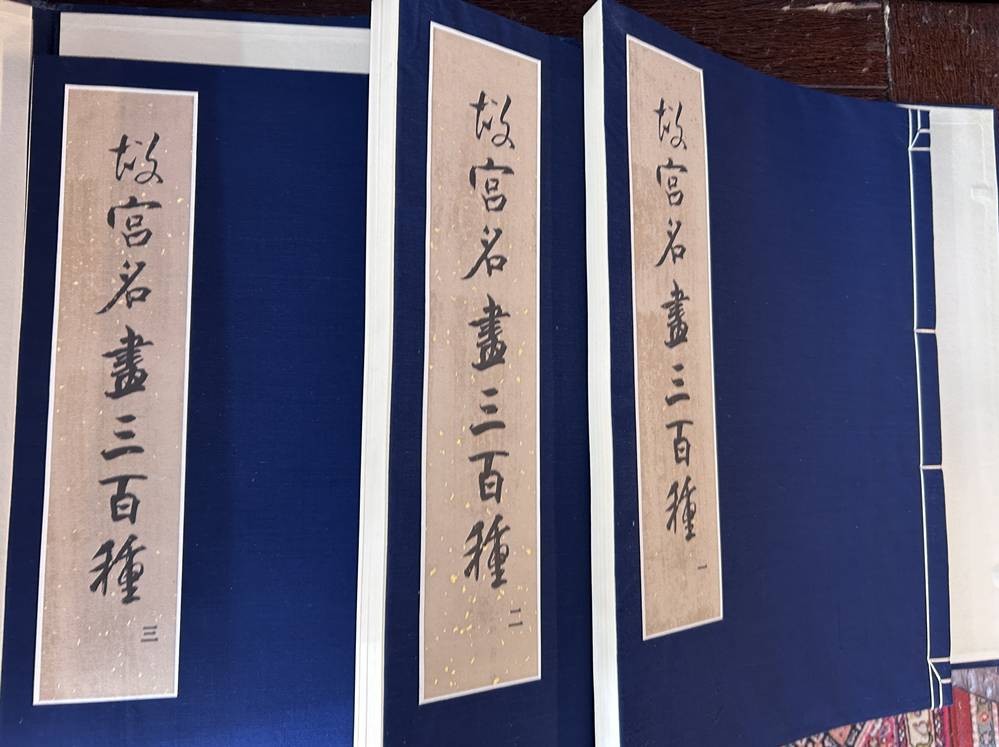 故宮名畫三百種
一
故宮名畫三百種
二
故宮名畫三百種
三